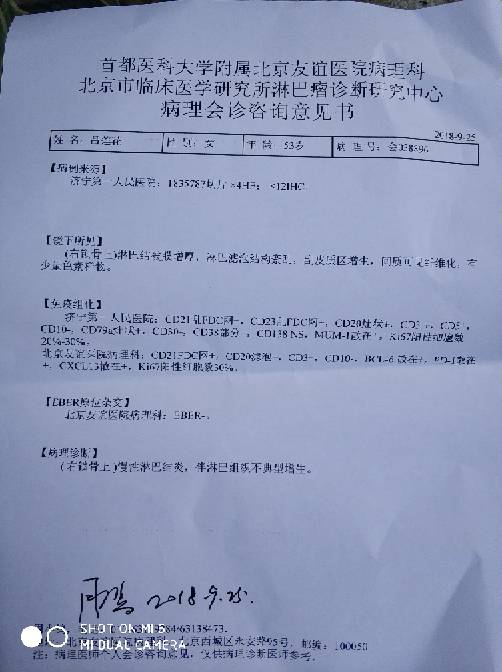 首都医科大学附属北京友谊医院病理科
北京市临床医学研究所淋巴瘤诊断研究中心
病理会诊咨询意见书
2018-9-25
姓名: 性别: 女 年龄: 53岁 病理号: 会038896
【病例来源】
济宁第一人民医院: 1835787切片×4HE; ×12IHC。
【镜下所见】
(右锁骨上)淋巴结被膜增厚, 淋巴滤泡结构紊乱, 副皮质区增生, 间质可见纤维化, 有
少量色素样物。
【免疫组化】
济宁第一人民医院: CD21乱FDC网+, CD23乱FDC网+, CD20灶状+, CD3+, CD5+,
CD10-, CD79a灶状+, CD30-, CD38部分+, CD138 NS, MUM-1散在+, Ki67阳性细胞数
20%-30%。
北京友谊医院病理科: CD21FDC网+, CD20滤泡+, CD3+, CD10-, BCL-6 散在+, PD-1散在
+, CXCL13散在+, Ki67阳性细胞数30%。
【EBER原位杂交】
北京友谊医院病理科: EBER-。
【病理诊断】
(右锁骨上)慢性淋巴结炎, 伴淋巴组织不典型增生。
2018.9.25.
63138473。
北京西城区永安路95号, 邮编: 100050
注: 病理医师个人会诊咨询意见, 仅供病理诊断医师参考。
SHOT ON MI 5
MI DUAL CAMERA